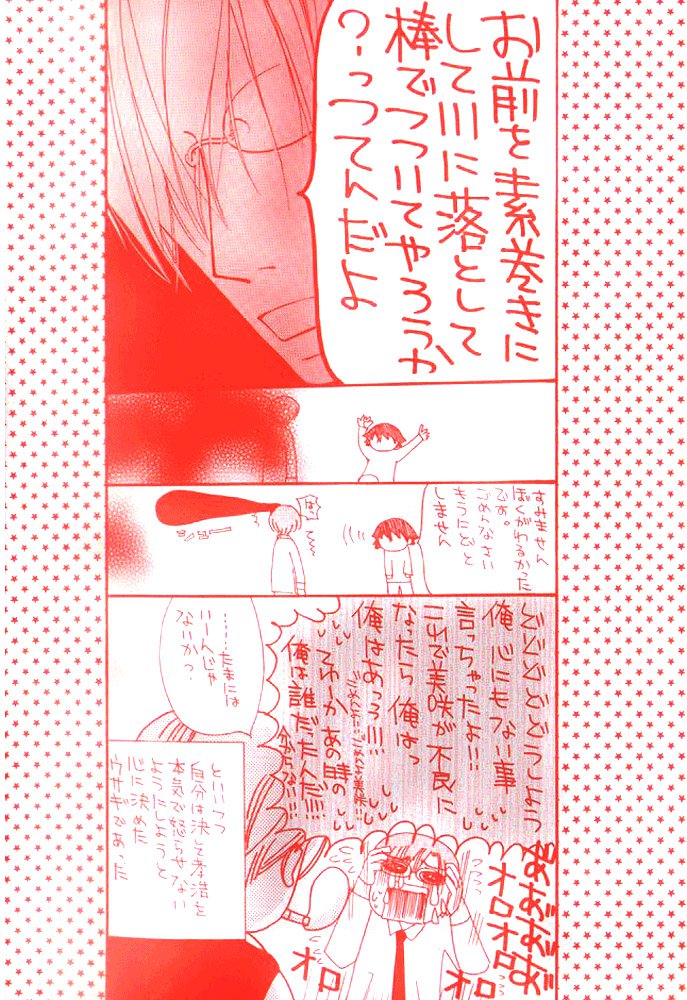 お前を素巻きに
して川に落として
棒でつついてやろうか
？ってんだよ
すみません
ぼくがわるかった
です。
ごめんなさい
もうにどと
しません
どどどどどうしよう
俺 心にもない事
言っちゃったよ!!
これで美咲が不良に
なったら俺はっ
俺はあっっ!!!
てゆーかあの時の
俺は誰だった人だ!!!
分かんない!!!
……たまには
いーんじゃ
ないかっ．
といいつつ
自分は決して孝浩を
本気で怒らせない
ようにしようと
心に決めた
ウサギであった
オロオロ
オロ
オロ